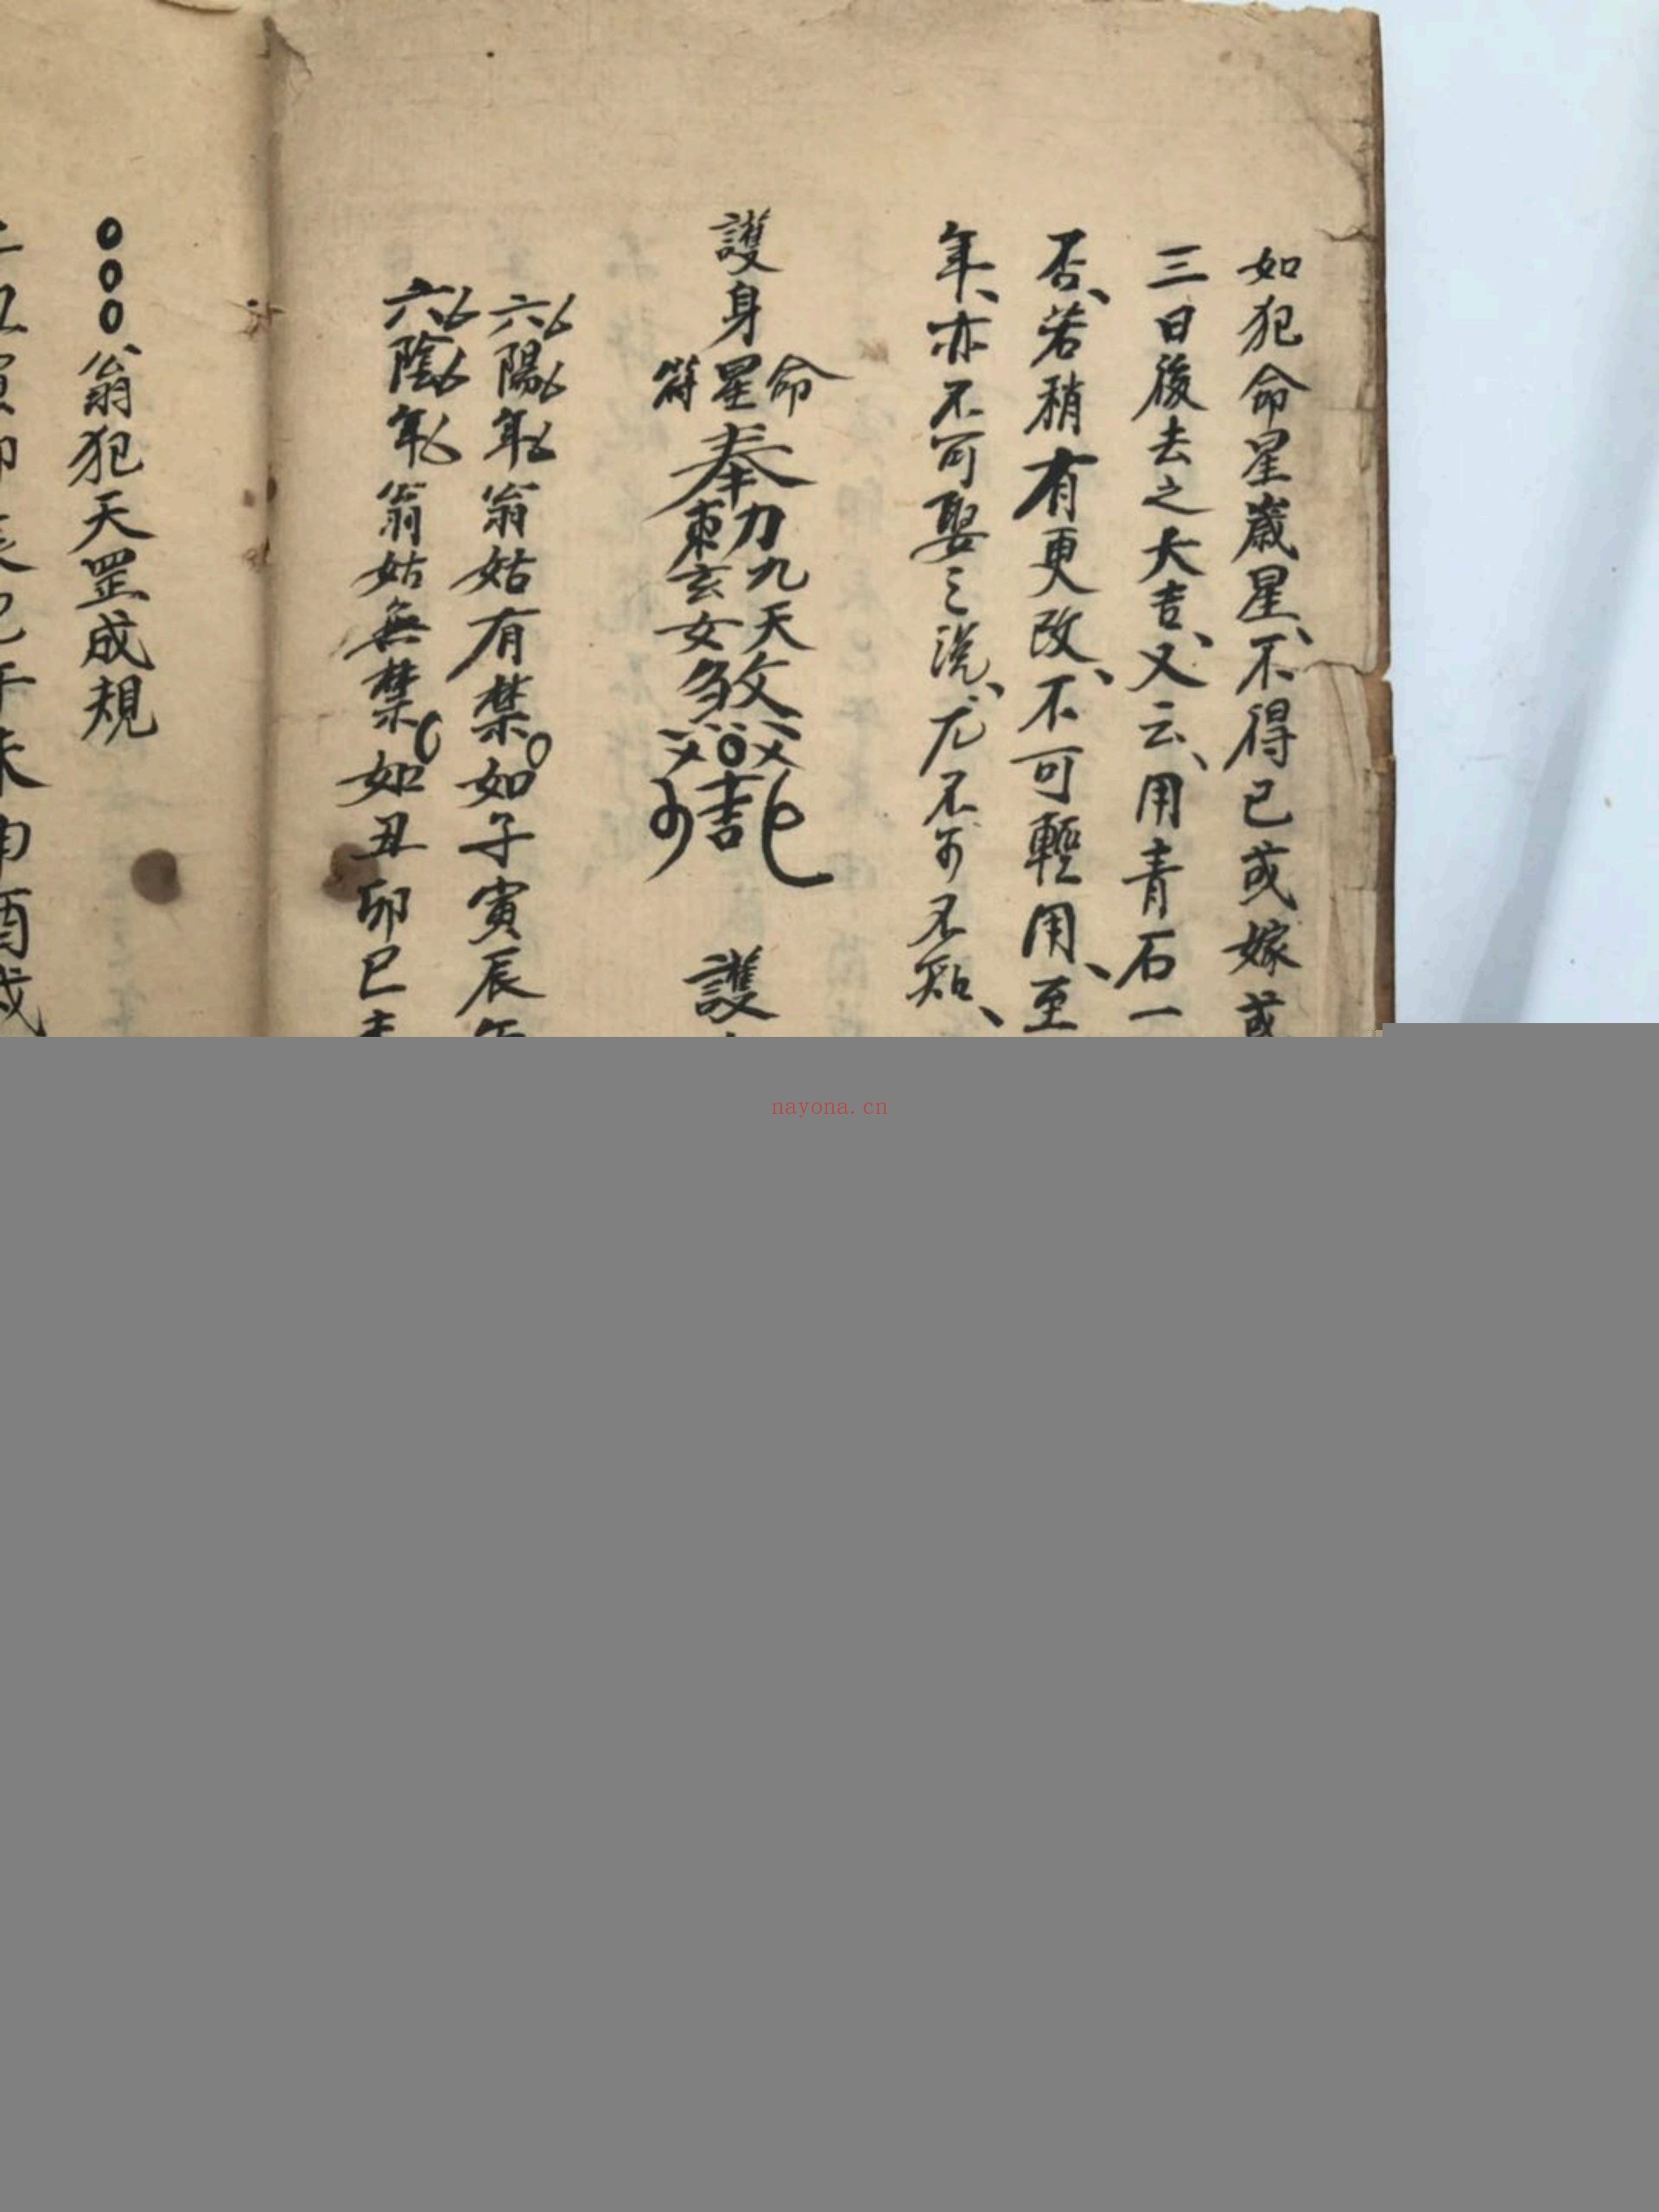 如犯命星歲星、不得已或嫁或
三日後去之大吉、又云、用青石一
否、若稍有更改、不可輕用、至
年、亦不可娶之說、尤不可不知、
護身
命星符
奉
九天
玄女
煞
護
六陽年翁姑有禁。如子寅辰午
六陰年翁姑無禁。如丑卯巳未
○○○翁犯天罡成規
寅卯辰巳午未申酉戌
nayona.cn